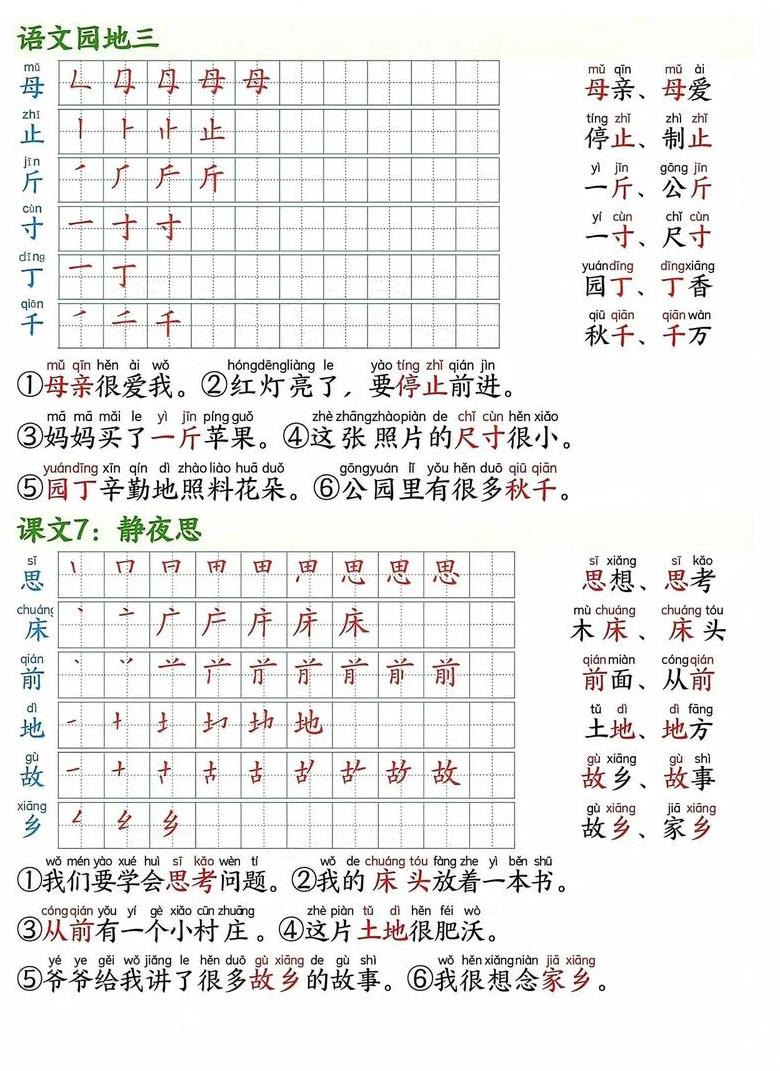 语文园地三
mǔ
母 𠃊 母 母 母 母
mǔ qīn mǔ ài
母亲、母爱
zhǐ
止 丨 ⺊ 止 止
tíng zhǐ zhì zhǐ
停止、制止
jīn
斤 丿 厂 斤 斤
yì jīn gōng jīn
一斤、公斤
cùn
寸 一 寸 寸
yí cùn chǐ cùn
一寸、尺寸
dīng
丁 一 丁
yuándīng dīngxiāng
园丁、丁香
qiān
千 丿 二 千
qiū qiān qiān wàn
秋千、千万
mǔ qīn hěn ài wǒ hóngdēngliàng le yào tíng zhǐ qián jìn
①母亲很爱我。②红灯亮了，要停止前进。
mā mā mǎi le yì jīn píng guǒ zhè zhāngzhàopiàn de chǐ cùn hěn xiǎo
③妈妈买了一斤苹果。④这张照片的尺寸很小。
yuándīng xīn qín dì zhào liào huā duǒ gōngyuán lǐ yǒu hěn duō qiū qiān
⑤园丁辛勤地照料花朵。⑥公园里有很多秋千。
课文7：静夜思
sī
思
sī xiǎng sī kǎo
思想、思考
chuáng
床
mù chuáng chuáng tóu
木床、床头
qián
前
qiánmiàn cóngqián
前面、从前
dì
地
tǔ dì dì fāng
土地、地方
gù
故
gù xiāng gù shì
故乡、故事
xiāng
乡
gù xiāng jiā xiāng
故乡、家乡
wǒ mén yào xué huì sī kǎo wèn tí wǒ de chuáng tóu fàng zhe yì běn shū
①我们要学会思考问题。②我的床头放着一本书。
cóngqián yǒu yí gè xiǎo cūn zhuāng zhè piàn tǔ dì hěn féi wò
③从前有一个小村庄。④这片土地很肥沃。
yé ye gěi wǒ jiǎng le hěn duō gù xiāng de gù shì wǒ hěn xiǎng niàn jiā xiāng
⑤爷爷给我讲了很多故乡的故事。⑥我很想念家乡。